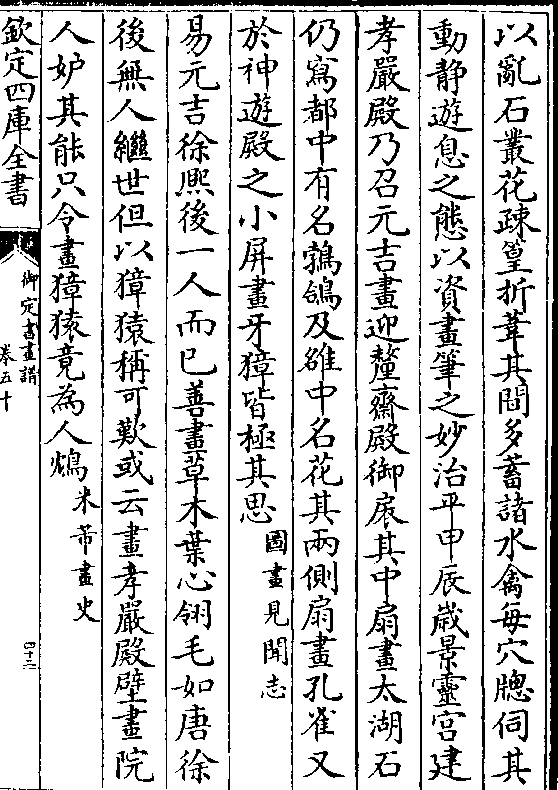 以亂石叢花疎篁折葦其間多蓄諸水禽每穴牕伺其
動静遊息之態以資畫筆之妙治平甲辰歳景靈宫建
孝嚴殿乃召元吉畫迎釐齋殿御扆其中扇畫太湖石
仍寫都中有名鵓鴿及雒中名花其兩側扇畫孔雀又
於神遊殿之小屏畫牙獐皆極其思圖畫見聞志
易元吉徐熈後一人而已善畫草木葉心翎毛如唐徐
後無人繼世但以獐猿稱可歎或云畫孝嚴殿壁畫院
人妒其能只令畫獐猿竟為人鴆米芾畫史
欽定四庫全書
御定書畫譜
卷五十
四十三